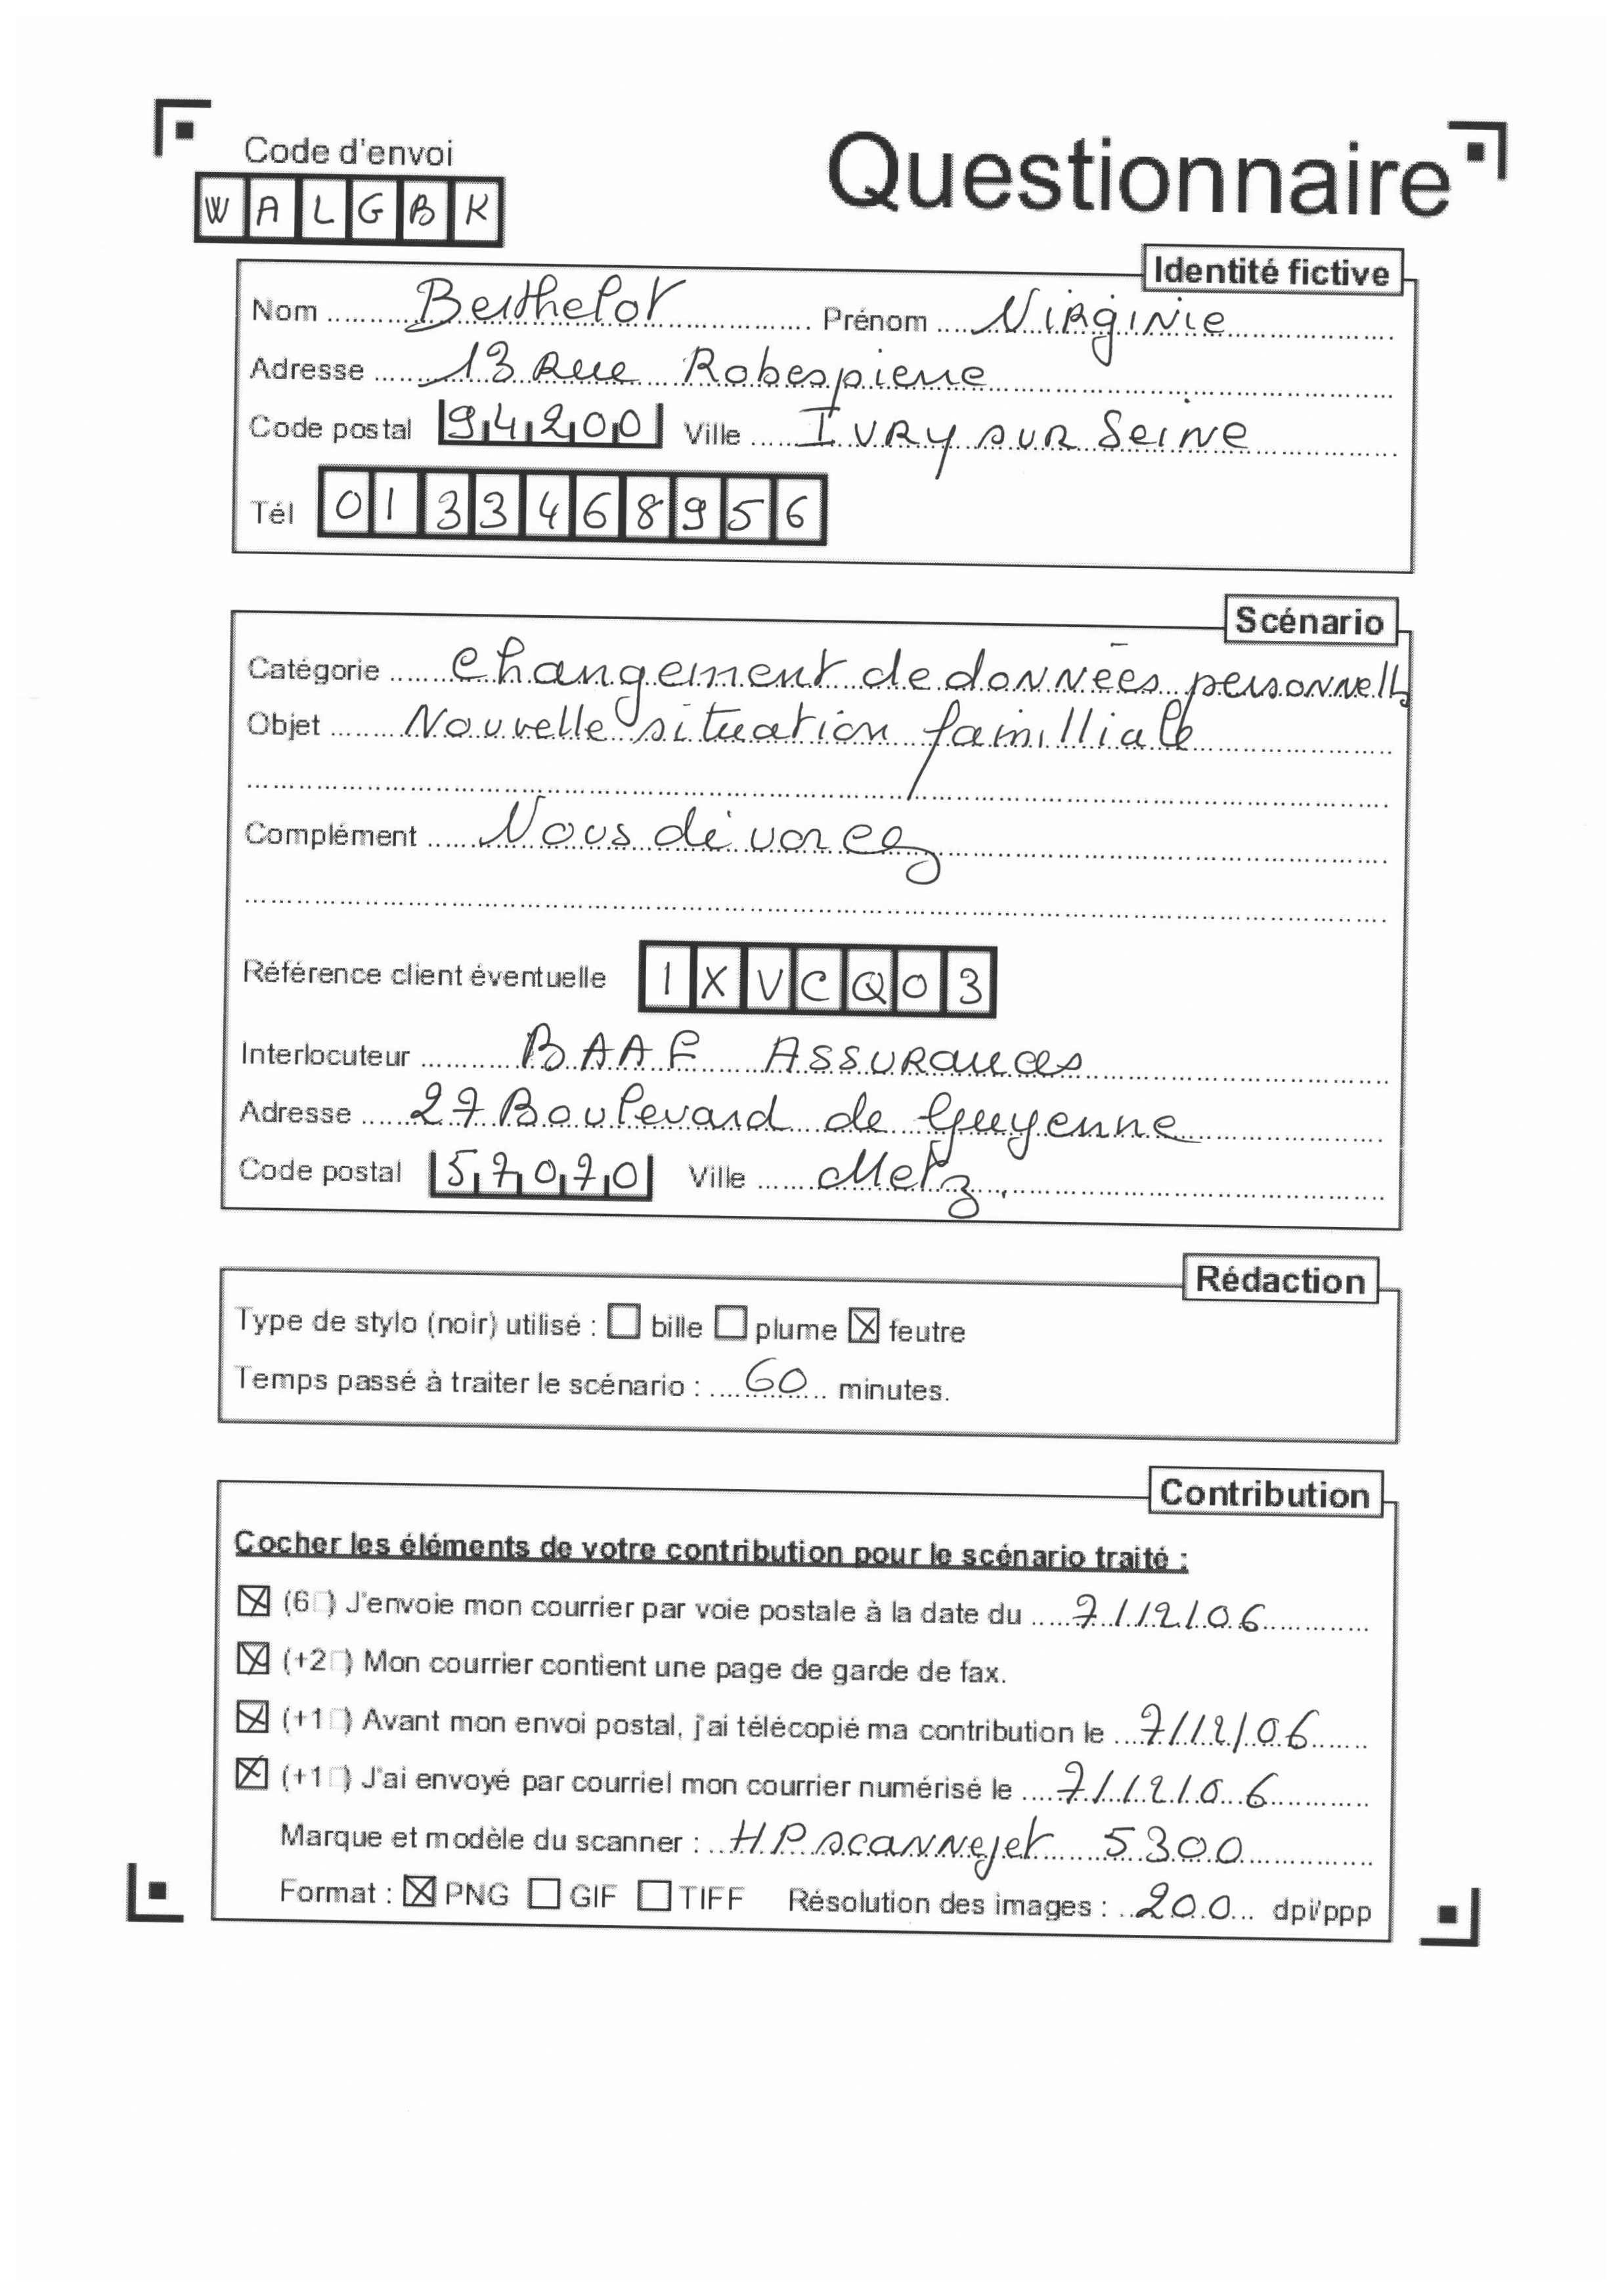 Code d'envoi
Questionnaire
W A L G B K
Identité fictive
Nom Berthelot Prénom Virginie
Adresse 13 Rue Robespierre
Code postal 94200 Ville Ivry sur Seine
Tél 0133468956
Scénario
Catégorie Changement de données personnelles
Objet Nouvelle situation familliale
Complément Vous divorcez
Référence client éventuelle 1XVCQ03
Interlocuteur BAAF Assurances
Adresse 27 Boulevard de Guyenne
Code postal 57070 Ville Metz.
Rédaction
Type de stylo (noir) utilisé : ☐ bille ☐ plume ☒ feutre
Temps passé à traiter le scénario : 60 minutes.
Contribution
Cocher les éléments de votre contribution pour le scénario traité :
☒ (6□) J'envoie mon courrier par voie postale à la date du 7/12/06
☒ (+2□) Mon courrier contient une page de garde de fax.
☒ (+1□) Avant mon envoi postal, j'ai télécopié ma contribution le 7/12/06
☒ (+1□) J'ai envoyé par courriel mon courrier numérisé le 7/12/06
Marque et modèle du scanner : HP scannejet 5300
Format : ☒ PNG ☐ GIF ☐ TIFF Résolution des images : 200 dpi/ppp